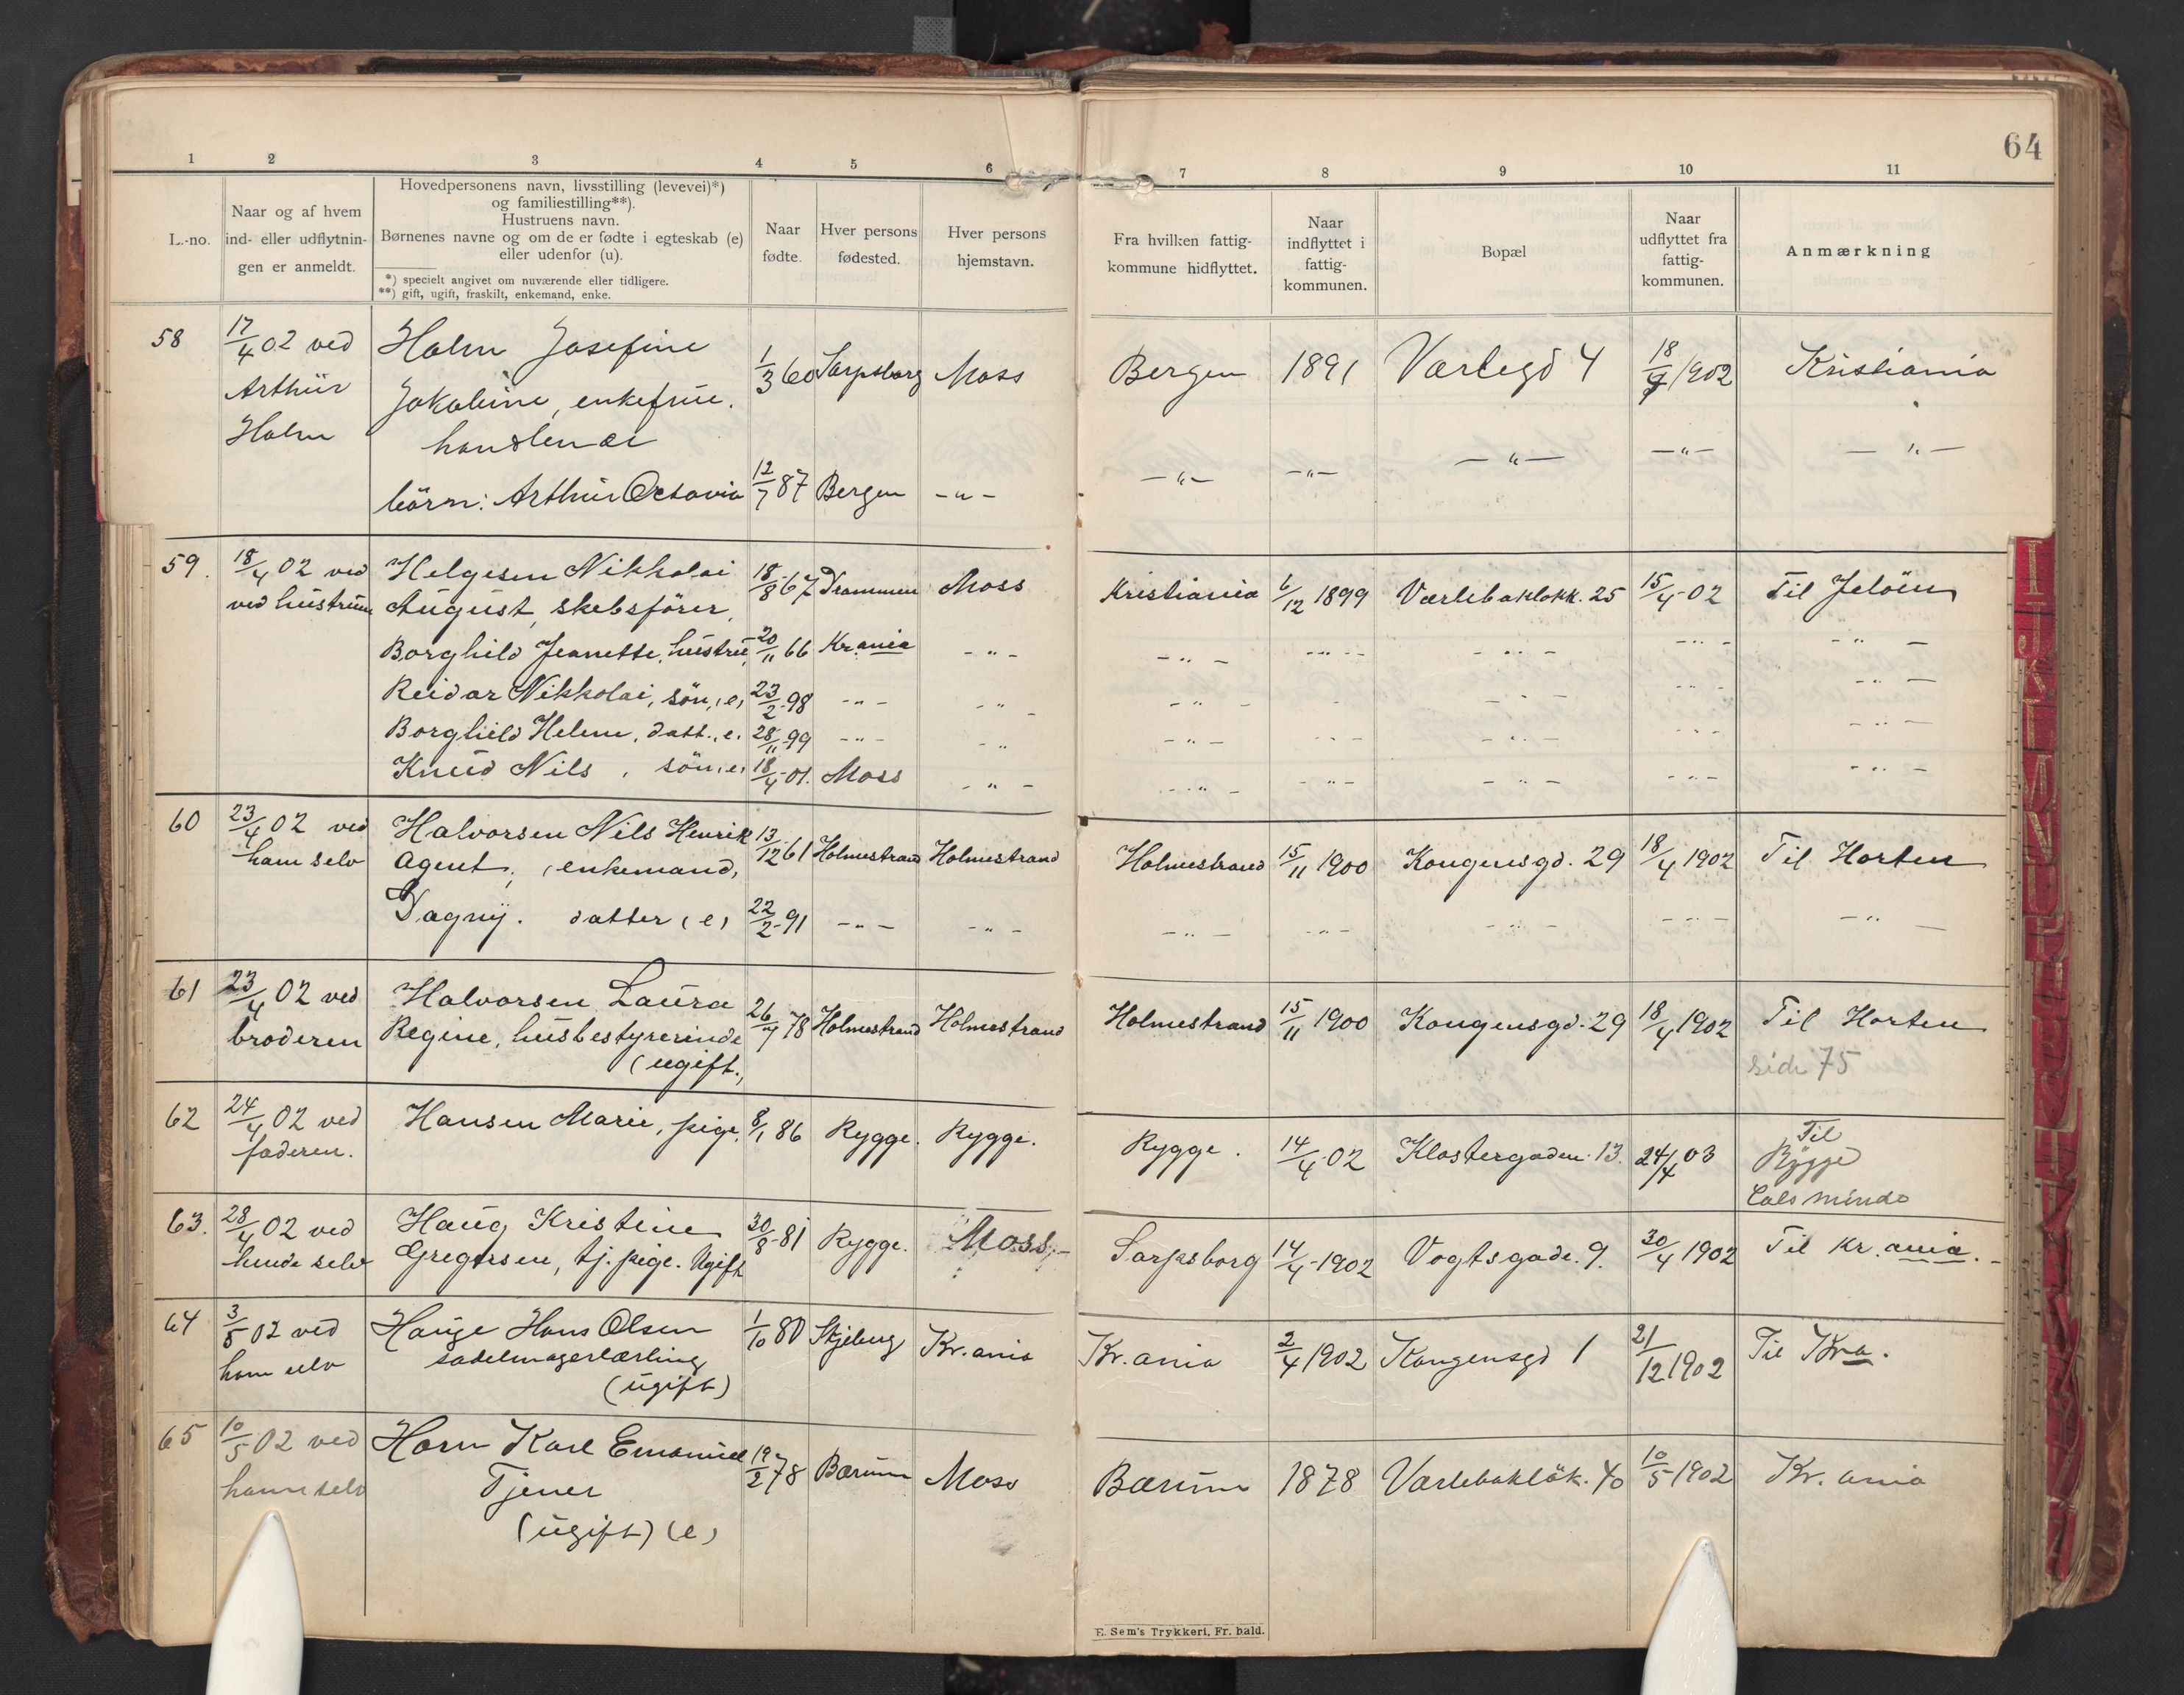 64
1 2 3 4 5 6 7 8 9 10 11
L.-no.
Naar og af hvem
ind- eller udflytnin-
gen er anmeldt.
Hovedpersonens navn, livsstilling (levevei)*)
og familiestilling**).
Hustruens navn.
Børnenes navne og om de er fødte i egteskab (e)
eller udenfor (u).
*) specielt angivet om nuværende eller tidligere.
**) gift, ugift, fraskilt, enkemand, enke.
Naar
fødte.
Hver persons
fødested.
Hver persons
hjemstavn.
Fra hvilken fattig-
kommune hidflyttet.
Naar
indflyttet i
fattig-
kommunen.
Bopæl
Naar
udflyttet fra
fattig-
kommunen.
Anmærkning
58 17/4 02 ved Holm Josefine 1/3 60 Sarpsborg Moss Bergen 1891 Varlegd 4 18/4 1902 Kristiania
Arthur Jakobine, enkefrue.
Holm handlende
börn: Arthur Octavio 12/7 87 Bergen -"- -"- -"- -"- -"- -"-
59. 18/4 02 ved Helgesen Nikkolai 18/8 67 Drammen Moss Kristiania 6/12 1899 Varlebaklökk. 25 15/4-02 Til Jelöen
ved hustruen August, skibsförer,
Borghild Jeanette, hustru, 20/11 66 Krania -"- -"- -"- -"- -"- -"-
Reidar Nikkolai, sön, (e) 23/2-98 -"- -"- -"- - -"- -"- -"-
Borghild Helene, datt., e. 28/11-99 -"- -"- -"- -"- -"- -"- -"-
Knud Nils, sön, (e) 18/4-01. Moss -"- -"- -"- -"- -"- -"-
60 23/4 02 ved Halvorsen Nils Henrik 13/12 61 Holmestrand Holmestrand Holmestrand 15/11 1900 Kongensgd. 29 18/4 1902 Til Horten
ham selv agent, (enkemand)
Dagny. datter (e) 22/2-91 -"- -"- -"- -"- -"- -"- -"-
61 23/4 02 ved Halvorsen Laura 26/7 78 Holmestrand Holmestrand Holmestrand 15/11 1900 Kongensgd. 29 18/4 1902 Til Horten
broderen Regine, husbestyrerinde side 75
(ugift.)
62 24/4 02 ved Hansen Marie, pige. 8/1 86 Rygge. Rygge. Rygge. 14/4-02 Klostergaden. 13. 24/4 03 Til
faderen. Rygge
63. 28/4 02 ved Haug Kristine 30/8-81 Rygge. Moss. Sarpsborg 14/4-1902 Vogtsgade. 9. 30/4 1902 Til Kr.ania.
hende selv Gregersen, tj. pige. Ugift
64 3/5 02 ved Hauge Hans Olsen 1/10 80 Skjeberg Kr.ania Kr.ania 2/4 1902 Kongensgd 1 21/12 1902 Til Kra.
ham selv sadelmagerlærling
(ugift)
65 10/5 02 ved Horn Karl Emanuel 19/2 78 Bærum Moss Bærum 1878 Varlebaklök. 40 10/5 1902 Kr. ania
ham selv Tjener
(ugift) (e)
E. Sem's Trykkeri, Fr. hald.